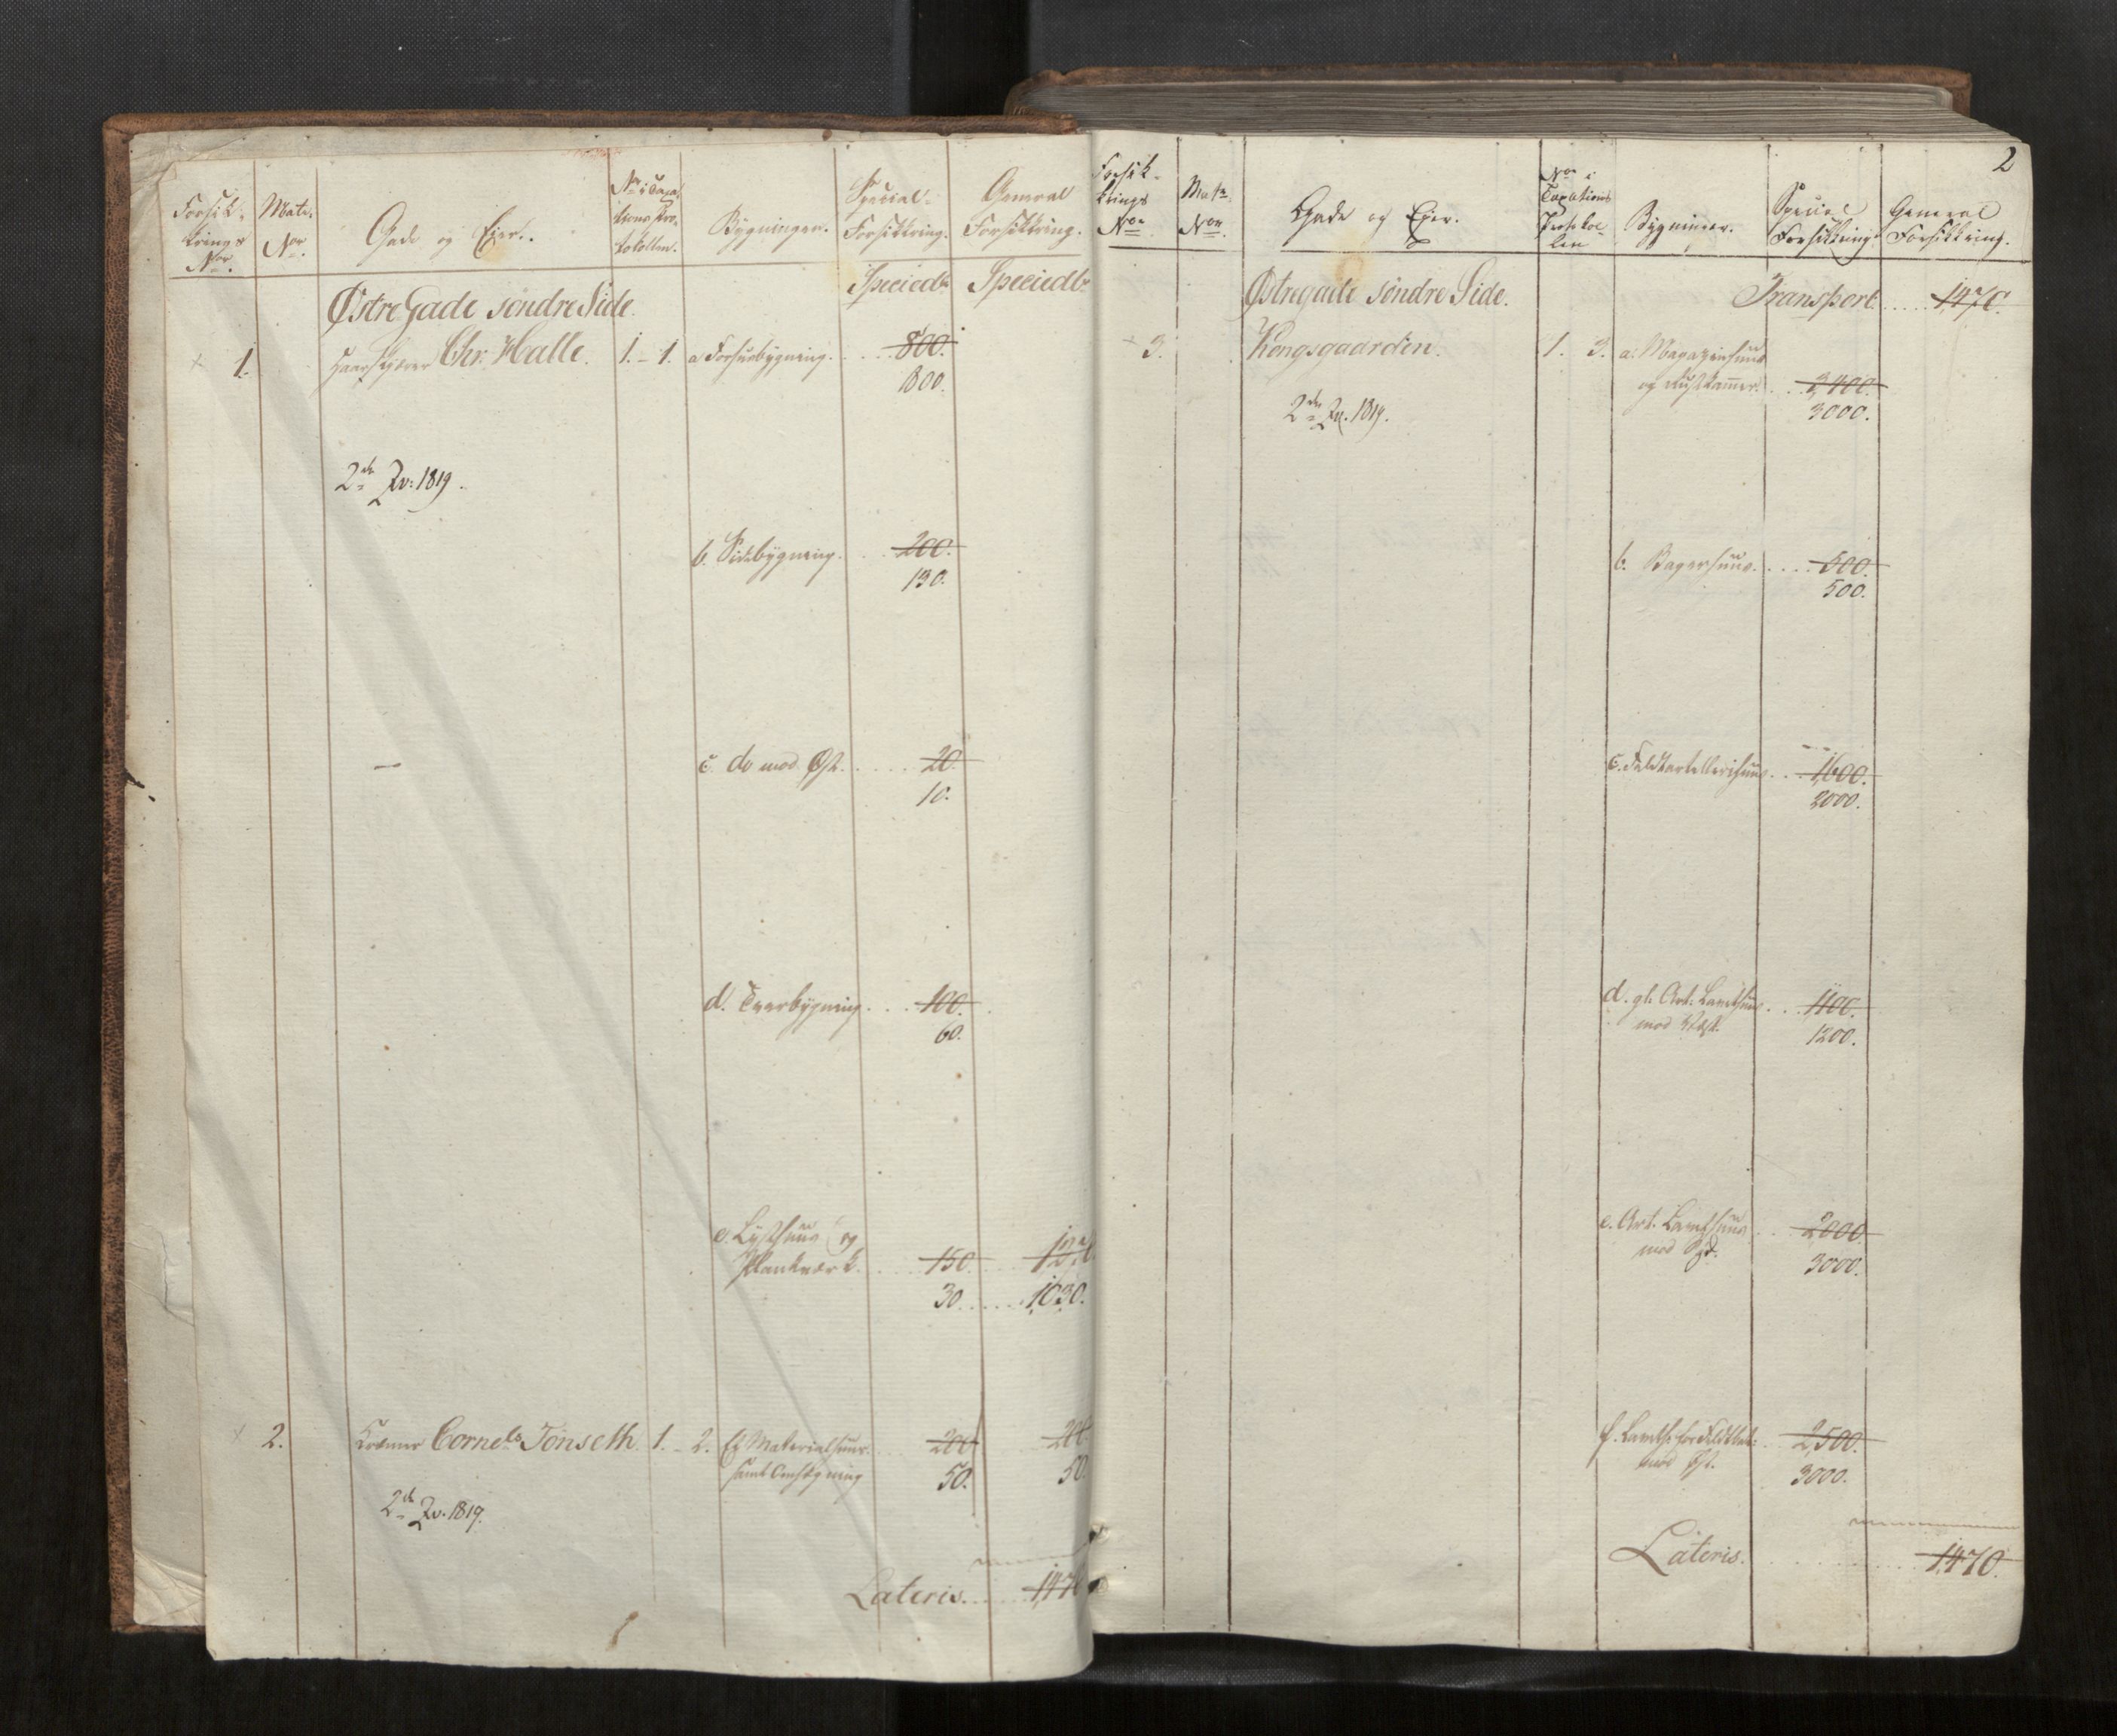 Forsik-
krings
Nor.
Matr.
Nor.
Gade og Eier.
No i Taxa-
tions Pro-
tokollen.
Bygninger.
Special-
Forsikkring.
General
Forsikkring.
Speciedr Speciedr
Østre Gade søndre Side.
1. Haarskjærer Chr: Halle. 1. - 1. a Forhuusbygning. 800.
800.
2de Tr: 1819.
b. Sidebygning. 200.
130.
— c. do mod Øst. 20.
10.
d. Tverbygning. 100.
60.
e. Lysthuus og
Plankverk. 150.
30. 1030.
2. Kræmer Cornels Jonseth 1. - 2. Et Materialhuus 200 200
samt Omhægning 50. 50
2de Tr. 1819.
Lateris. 1,470
2
Forsik-
krings
Nor
Matr.
Nor.
Gade og Eier.
Nor i
Taxations
Protokol-
len
Bygninger.
Special
Forsikkring.
General
Forsikkring.
Østregade søndre Side. Transport. 1,470.
3. Kongsgaarden. 1. 3. a. Magazinhuus
og Rustkamer. 2,400.
3000.
2de Tr. 1819.
b. Bagerhuus. 800.
500.
c. Feldtartellerihuus. 1,600.
2000.
d. gl: Art: Lavethuus 1100.
mod Vest. 1200.
e. Art. Lavethuus 2000.
mod Syd. 3000.
f. Laveth: for Feldtbat: 2,500.
mod Øst. 3000.
Lateris. 1,470.